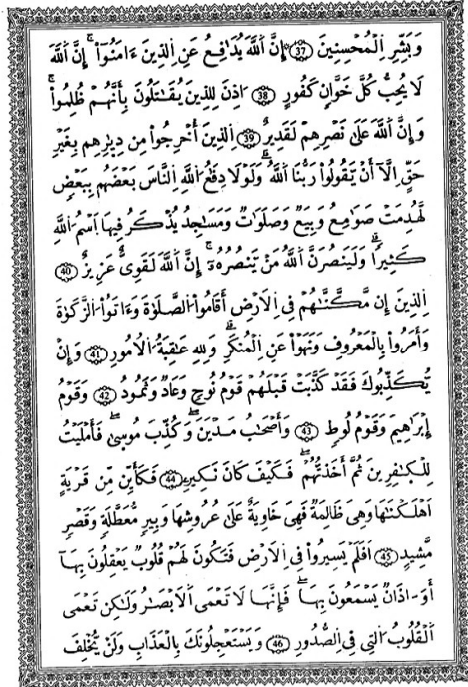 وَبَشِّرِ اِ۬لْمُحْسِنِينَ ۖ 37 إِنَّ اَ۬للَّهَ يُدَٰفِعُ عَنِ اِ۬لذِينَ ءَامَنُوٓا۟ ۖ إِنَّ اَ۬للَّهَ
لَا يُحِبُّ كُلَّ خَوَّانٖ كَفُورٍ ۖ 38 ا۟ذِنَ لِلذِينَ يُقَٰتَلُونَ بِأَنَّهُمْ ظُلِمُوا۟ ۖ
وَإِنَّ اَ۬للَّهَ عَلَىٰ نَصْرِهِمْ لَقَدِيرٌ 39 اِ۬لذِينَ أُخْرِجُوا۟ مِن دِيَٰرِهِم بِغَيْرِ
حَقٍّ اِلَّآ أَنْ يَّقُولُوا۟ رَبُّنَا اَ۬للَّهُ ۖ وَلَوْلَا دِفَٰعُ اُ۬للَّهِ اِ۬لنَّاسَ بَعْضَهُم بِبَعْضٖ
لَّهُدِمَتْ صَوَٰمِعُ وَبِيَعٞ وَصَلَوَٰتٞ وَمَسَٰجِدُ يُذْكَرُ فِيهَا اَ۪سْمُ اُ۬للَّهِ
كَثِيراٗ ۖ وَلَيَنصُرَنَّ اَ۬للَّهُ مَنْ يَّنصُرُهُۥٓ ۖ إِنَّ اَ۬للَّهَ لَقَوِيٌّ عَزِيزٌ 40
اِ۬لذِينَ إِن مَّكَّنَّٰهُمْ فِى اِ۬لَارْضِ أَقَامُوا۟ اُ۬لصَّلَوٰةَ وَءَاتَوُا۟ اُ۬لزَّكَوٰةَ
وَأَمَرُوا۟ بِالْمَعْرُوفِ وَنَهَوْا۟ عَنِ اِ۬لْمُنكَرِ ۖ وَلِلهِ عَٰقِبَةُ اُ۬لُامُورِ 41 وَإِنْ
يُّكَذِّبُوكَ فَقَدْ كَذَّبَتْ قَبْلَهُمْ قَوْمُ نُوحٖ وَعَادٞ وَثَمُودُ 42 وَقَوْمُ
إِبْرَٰهِيمَ وَقَوْمُ لُوطٖ 43 وَأَصْحَٰبُ مَدْيَنَ ۖ وَكُذِّبَ مُوسَىٰ ۖ فَأَمْلَيْتُ
لِلْكَٰفِرِينَ ثُمَّ أَخَذتُّهُمْ ۖ فَكَيْفَ كَانَ نَكِيرِ ۦ 44 فَكَأَيِّن مِّن قَرْيَةٍ
اَهْلَكْنَٰهَا وَهِىَ ظَالِمَةٞ فَهِىَ خَاوِيَةٌ عَلَىٰ عُرُوشِهَا وَبِيرٖ مُّعَطَّلَةٖ وَقَصْرٖ
مَّشِيدٍ 45 اَفَلَمْ يَسِيرُوا۟ فِى اِ۬لَارْضِ فَتَكُونَ لَهُمْ قُلُوبٞ يَعْقِلُونَ بِهَآ
أَوَ اٰذَانٞ يَسْمَعُونَ بِهَا ۖ فَإِنَّهَا لَا تَعْمَى اَ۬لَابْصَٰرُ وَلَٰكِن تَعْمَى
اَ۬لْقُلُوبُ اُ۬لتِى فِى اِ۬لصُّدُورِ 46 وَيَسْتَعْجِلُونَكَ بِالْعَذَابِ وَلَنْ يُّخْلِفَ